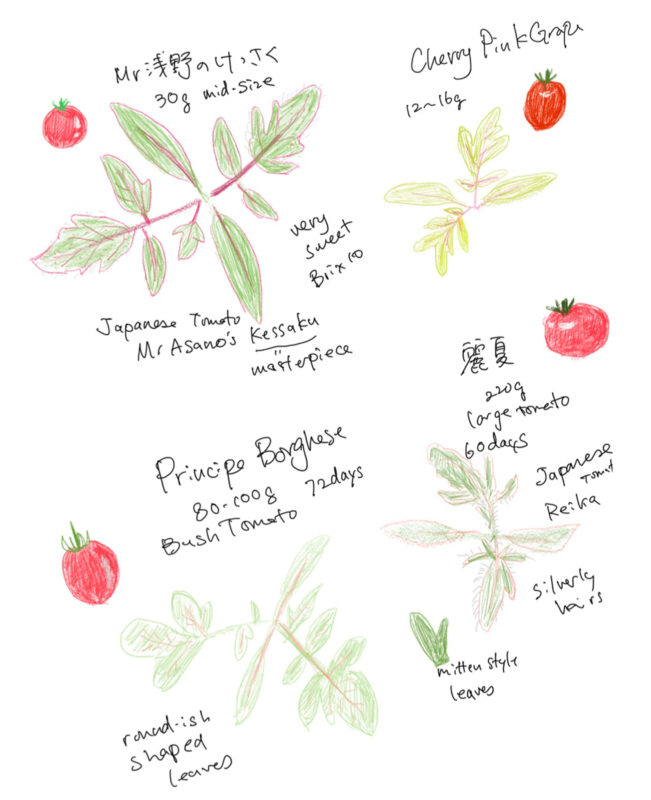 Mr浅野のけっさく
30g mid-size
very
sweet
Brix 10
Japanese Tomato
Mr Asano's Kessaku
"
masterpiece
Cherry Pink Grape
12~16g
麗夏
220g
large tomato
60days
Japanese
Tomat
Reika
silverly
hairs
mitten style
leaves
Principe Borghese
80-100g 72days
Bush Tomato
round-ish
shaped
leaves